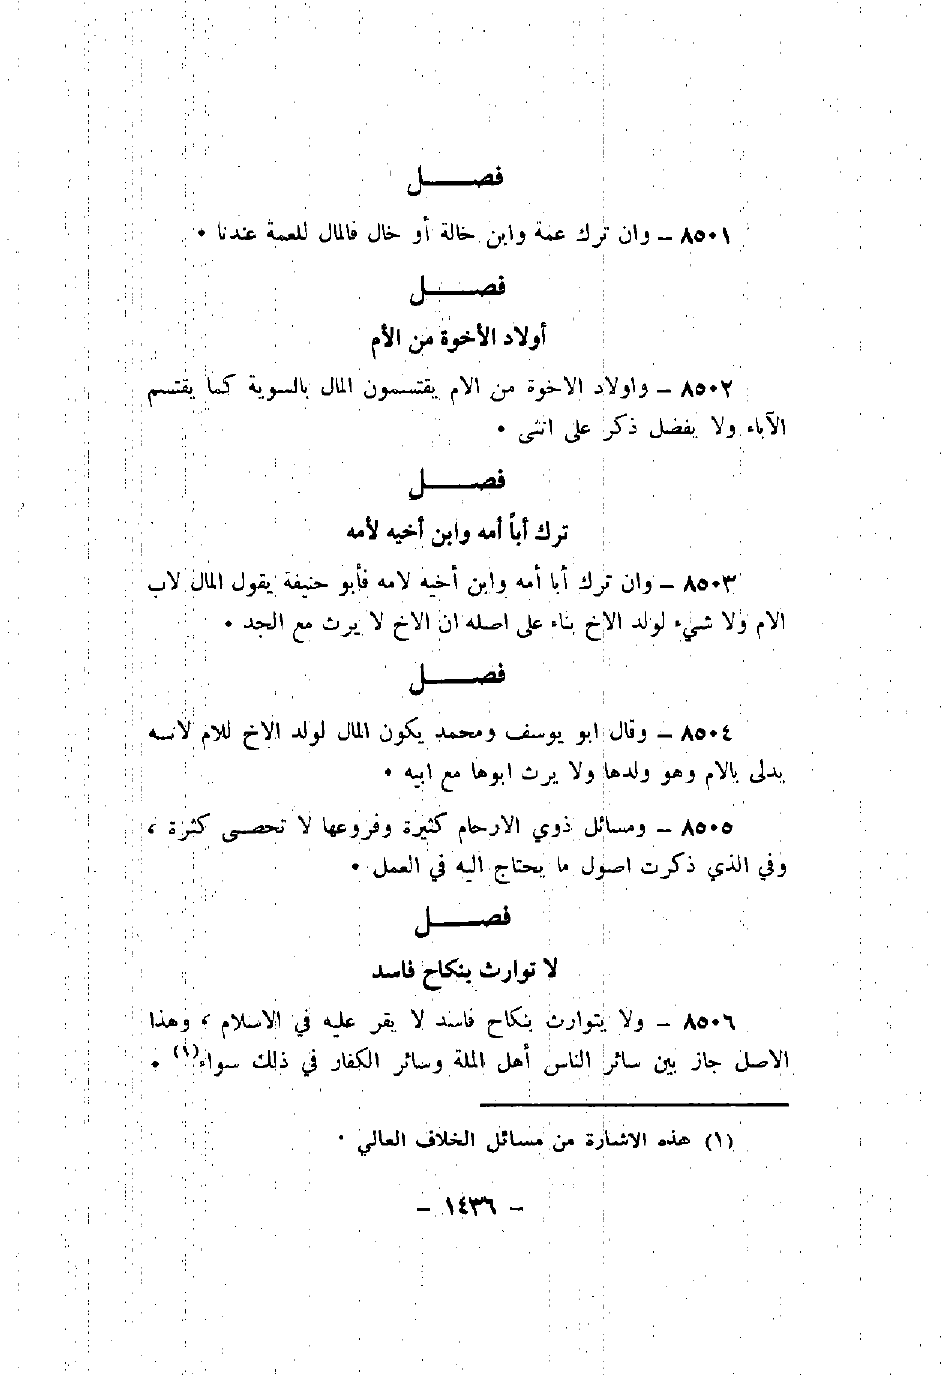 فصـــــل
٨٥٠١ – وان ترك عمة وابن خالة أو خال فالمال للعمة عندنا •
فصـــــل
أولاد الأخوة من الأم
٨٥٠٢ – واولاد الاخوة من الام يقتسمون المال بالسوية كما يقتسم
الآباء ولا يفضل ذكر على انثى •
فصـــــل
ترك أباً أمه وابن أخيه لأمه
٨٥٠٣ – وان ترك أبا أمه وابن أخيه لامه فأبو حنيفة يقول المال لاب
الام ولا شيء لولد الاخ بناء على اصله ان الاخ لا يرث مع الجد •
فصـــــل
٨٥٠٤ – وقال ابو يوسف ومحمد يكون المال لولد الاخ للام لانـه
يدلى بالام وهو ولدها ولا يرث ابوها مع ابيه •
٨٥٠٥ – ومسائل ذوي الارحام كثيرة وفروعها لا تحصـى كثرة ،
وفي الذي ذكرت اصول ما يحتاج اليه في العمل •
فصـــــل
لا توارث بنكاح فاسد
٨٥٠٦ – ولا يتوارث بنكاح فاسد لا يقر عليه في الاسلام ، وهذا
الاصل جاز بين سائر الناس أهل الملة وسائر الكفار في ذلك سواء(١) •
(١) هذه الاشارة من مسائل الخلاف العالي •
– ١٤٣٦ –